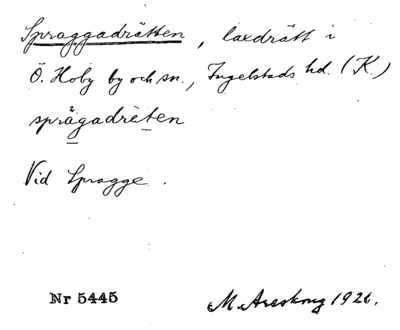 Spraggadrätten, laxdrätt i
Ö. Hoby by och sn., Ingelstads hd. (K)
sprägadrèten
Vid Spragge.
Nr 5445
M. Areskoug 1926.